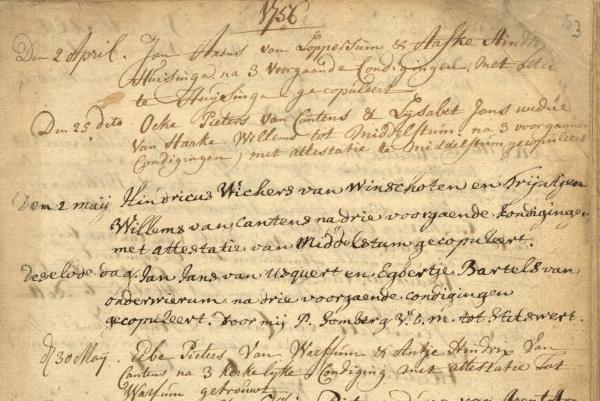 1756
53
Den 2 April. Jan Arens van Loppersum & Aafke Hindrix
Huisinga. na 3 voorgaande Condigingen, met attie
te Huisinga gecopuleert
Den 25 dito Ocke Pieters van Cantens & Lysabet Jans weduwe
van Harke Willems tot Middelstum. na 3 voorgaande
Condigingen, met attestatie te Middelstum gecopuleert
Den 2 maij Hindricus Wickers van Winschoten en
Willems van Cantens na drie voorgaende kondigingen
met attestatie van Middelstum gecopuleert.
Deselvde dag. Jan Jans van Usquert en Egbertje Bartels van
onderwierum na drie voorgaende condigingen
gecopuleert. Door mij P. Homberg V.D.M. tot Stitswert.
d 30 Maij. Ebe Pieters Van Warffum & Antje Hindrix Van
Cantens na 3 kerkelyke Condiging met attestatie tot
Warfum getrouwt